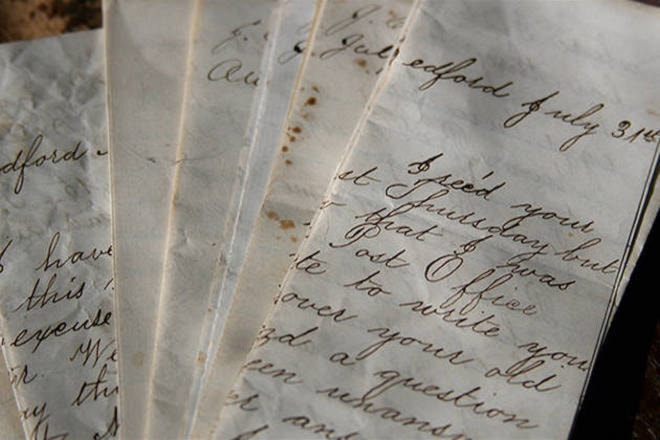 dford
have
this
excuse
r. We
ay thi
J. Jul
Au
edford July 31st
I rec'd your
st Thursday but
that I was
Post Office
te to write you
over your old
nd a question
een unansw
er and